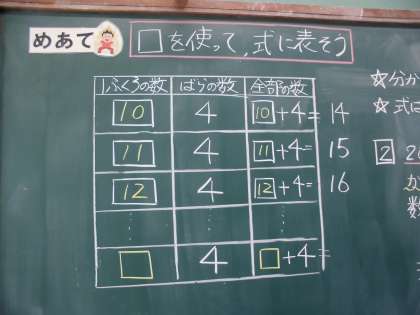 めあて □を使って、式に表そう
1ふくろの数 ばらの数 全部の数
10 4 10+4= 14
11 4 11+4= 15
12 4 12+4= 16
⋮ ⋮ ⋮
□ 4 □+4=
☆分か
☆式に
2
数